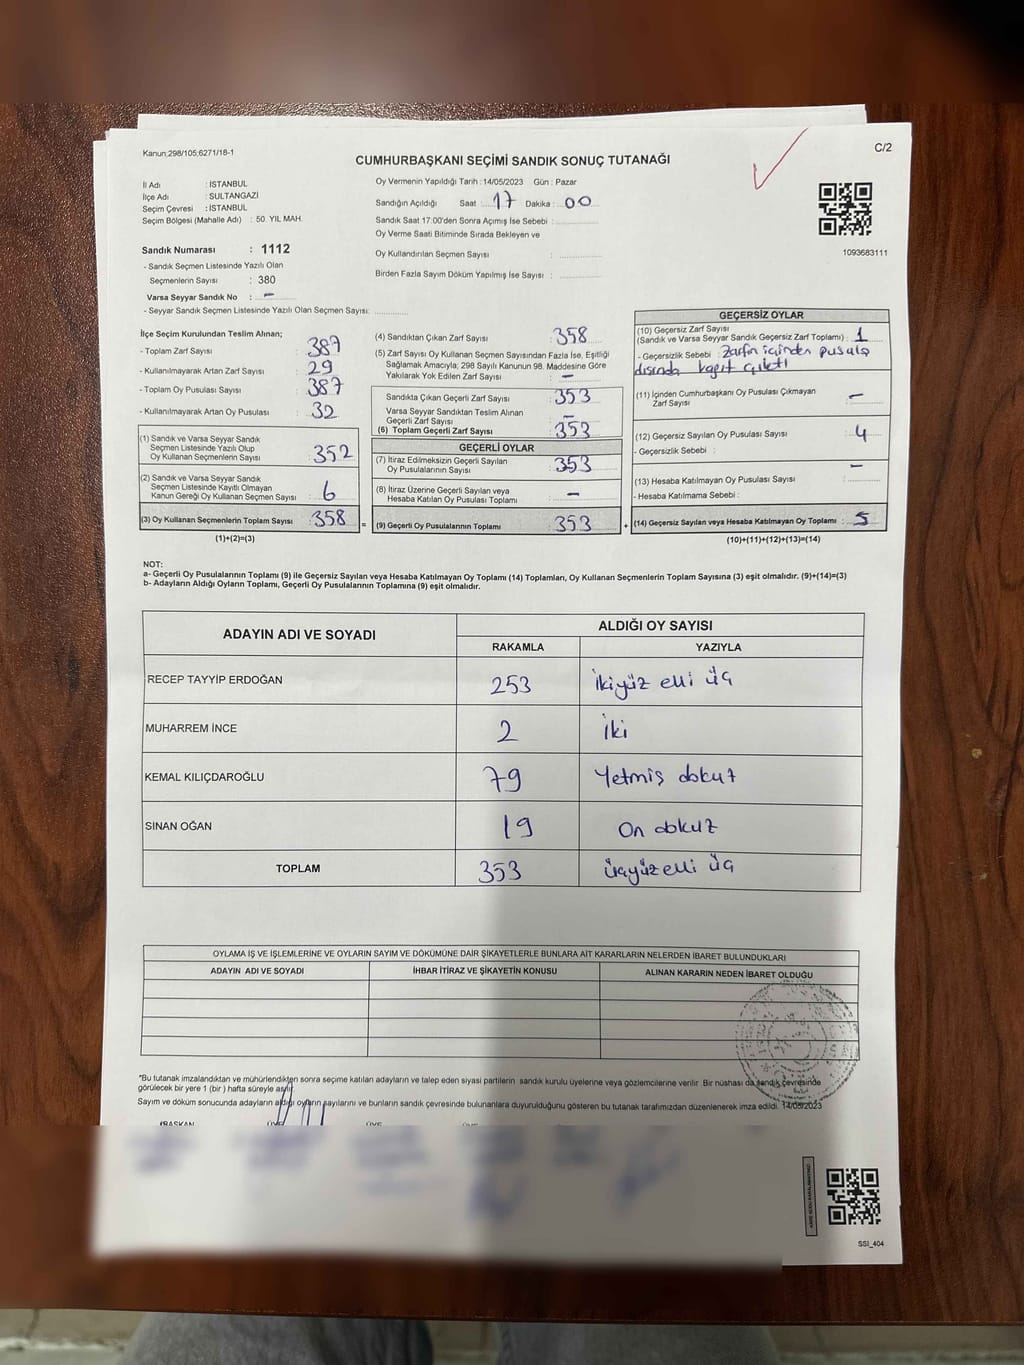 Kanun;298/105;6271/18-1
C/2
CUMHURBAŞKANI SEÇİMİ SANDIK SONUÇ TUTANAĞI
İl Adı : İSTANBUL
İlçe Adı : SULTANGAZİ
Seçim Çevresi : İSTANBUL
Seçim Bölgesi (Mahalle Adı) : 50. YIL MAH.
Sandık Numarası : 1112
- Sandık Seçmen Listesinde Yazılı Olan
Seçmenlerin Sayısı : 380
Varsa Seyyar Sandık No : -
- Seyyar Sandık Seçmen Listesinde Yazılı Olan Seçmen Sayısı:
Oy Vermenin Yapıldığı Tarih : 14/05/2023 Gün : Pazar
Sandığın Açıldığı Saat : 17 Dakika : 00
Sandık Saat 17:00'den Sonra Açılmış İse Sebebi :
Oy Verme Saati Bitiminde Sırada Bekleyen ve
Oy Kullandırılan Seçmen Sayısı :
Birden Fazla Sayım Döküm Yapılmış İse Sayısı :
1093683111
İlçe Seçim Kurulundan Teslim Alınan;
- Toplam Zarf Sayısı : 387
- Kullanılmayarak Artan Zarf Sayısı : 29
- Toplam Oy Pusulası Sayısı : 387
- Kullanılmayarak Artan Oy Pusulası : 32
(1) Sandık ve Varsa Seyyar Sandık
Seçmen Listesinde Yazılı Olup
Oy Kullanan Seçmenlerin Sayısı : 352
(2) Sandık ve Varsa Seyyar Sandık
Seçmen Listesinde Kayıtlı Olmayan
Kanun Gereği Oy Kullanan Seçmen Sayısı : 6
(3) Oy Kullanan Seçmenlerin Toplam Sayısı : 358 =
(1)+(2)=(3)
(4) Sandıktan Çıkan Zarf Sayısı : 358
(5) Zarf Sayısı Oy Kullanan Seçmen Sayısından Fazla İse, Eşitliği
Sağlamak Amacıyla; 298 Sayılı Kanunun 98. Maddesine Göre
Yakılarak Yok Edilen Zarf Sayısı : -
Sandıkta Çıkan Geçerli Zarf Sayısı : 353
Varsa Seyyar Sandıktan Teslim Alınan
Geçerli Zarf Sayısı : -
(6) Toplam Geçerli Zarf Sayısı : 353
GEÇERLİ OYLAR
(7) İtiraz Edilmeksizin Geçerli Sayılan
Oy Pusulalarının Sayısı : 353
(8) İtiraz Üzerine Geçerli Sayılan veya
Hesaba Katılan Oy Pusulası Toplamı : -
(9) Geçerli Oy Pusulalarının Toplamı : 353 +
GEÇERSİZ OYLAR
(10) Geçersiz Zarf Sayısı
(Sandık ve Varsa Seyyar Sandık Geçersiz Zarf Toplamı) : 1
- Geçersizlik Sebebi : Zarfın içinden pusula
dışında kağıt çıktı
(11) İçinden Cumhurbaşkanı Oy Pusulası Çıkmayan
Zarf Sayısı : -
(12) Geçersiz Sayılan Oy Pusulası Sayısı : 4
- Geçersizlik Sebebi :
(13) Hesaba Katılmayan Oy Pusulası Sayısı : -
- Hesaba Katılmama Sebebi :
(14) Geçersiz Sayılan veya Hesaba Katılmayan Oy Toplamı : 5
(10)+(11)+(12)+(13)=(14)
NOT:
a- Geçerli Oy Pusulalarının Toplamı (9) ile Geçersiz Sayılan veya Hesaba Katılmayan Oy Toplamı (14) Toplamları, Oy Kullanan Seçmenlerin Toplam Sayısına (3) eşit olmalıdır. (9)+(14)=(3)
b- Adayların Aldığı Oyların Toplamı, Geçerli Oy Pusulalarının Toplamına (9) eşit olmalıdır.
ADAYIN ADI VE SOYADI ALDIĞI OY SAYISI
RAKAMLA YAZIYLA
RECEP TAYYİP ERDOĞAN 253 ikiyüz elli üç
MUHARREM İNCE 2 iki
KEMAL KILIÇDAROĞLU 79 Yetmiş dokuz
SİNAN OĞAN 19 On dokuz
TOPLAM 353 üçyüz elli üç
OYLAMA İŞ VE İŞLEMLERİNE VE OYLARIN SAYIM VE DÖKÜMÜNE DAİR ŞİKAYETLERLE BUNLARA AİT KARARLARIN NELERDEN İBARET BULUNDUKLARI
ADAYIN ADI VE SOYADI İHBAR İTİRAZ VE ŞİKAYETİN KONUSU ALINAN KARARIN NEDEN İBARET OLDUĞU
*Bu tutanak imzalandıktan ve mühürlendikten sonra seçime katılan adayların ve talep eden siyasi partilerin sandık kurulu üyelerine veya gözlemcilerine verilir. Bir nüshası da sandık çevresinde
görülecek bir yere 1 (bir) hafta süreyle asılır.
Sayım ve döküm sonucunda adayların aldığı oyların sayılarını ve bunların sandık çevresinde bulunanlara duyurulduğunu gösteren bu tutanak tarafımızdan düzenlenerek imza edildi. 14/05/2023
BAŞKAN ÜYE ÜYE ÜYE
SSI_404